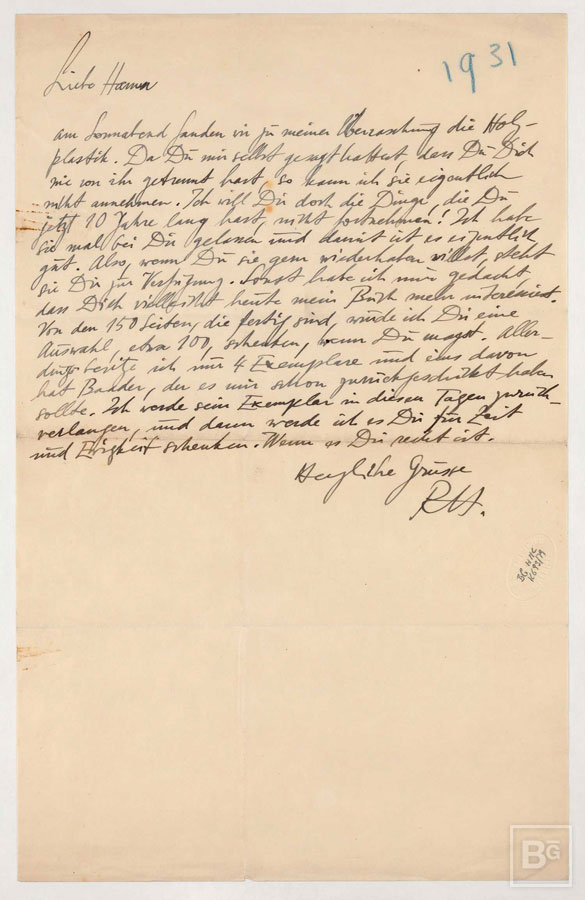 1931
Liebe Hanna
am Sonnabend fanden wir zu meiner Überraschung die Holz-
plastik. Da Du mir selbst gesagt hattest, dass Du Dich
nie von ihr getrennt hast, so kann ich sie eigentlich
nicht annehmen. Ich will Dir doch die Dinge, die Du
jetzt 10 Jahre lang hast, nicht fortnehmen! Ich habe
sie mal bei Dir gelassen und damit ist es eigentlich
gut. Also, wenn Du sie gern wiederhaben willst, steht
sie Dir zur Verfügung. Sonst habe ich mir gedacht,
dass Dich vielleicht heute mein Buch mehr interessiert.
Von den 150 Seiten, die fertig sind, würde ich Dir eine
Auswahl, etwa 100, schenken, wenn Du magst. Aller-
dings besitze ich nur 4 Exemplare und eins davon
hat Baader, der es mir schon zurückgeschickt haben
sollte. Ich werde sein Exemplar in diesen Tagen zurück-
verlangen, und dann werde ich es Dir für Zeit
und Ewigkeit schenken. Wenn es Dir recht ist.
Herzliche Grüsse
RH.
BG